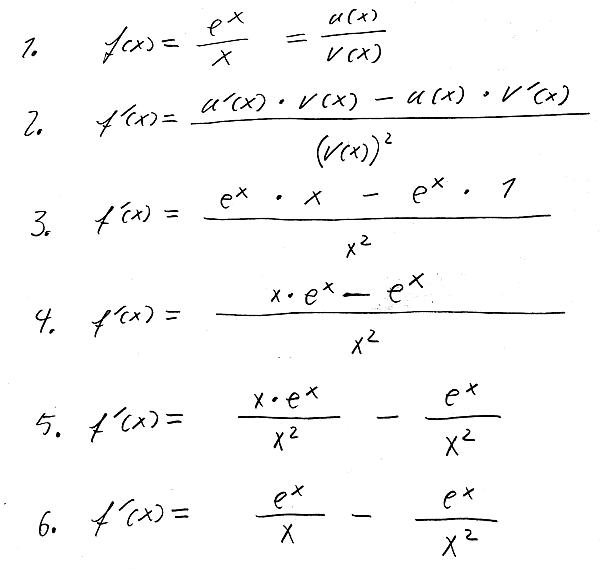 1. f(x) = e^x / x = u(x) / v(x)
2. f'(x) = (u'(x) · v(x) − u(x) · v'(x)) / (v(x))²
3. f'(x) = (e^x · x − e^x · 1) / x²
4. f'(x) = (x · e^x − e^x) / x²
5. f'(x) = (x · e^x) / x² − e^x / x²
6. f'(x) = e^x / x − e^x / x²